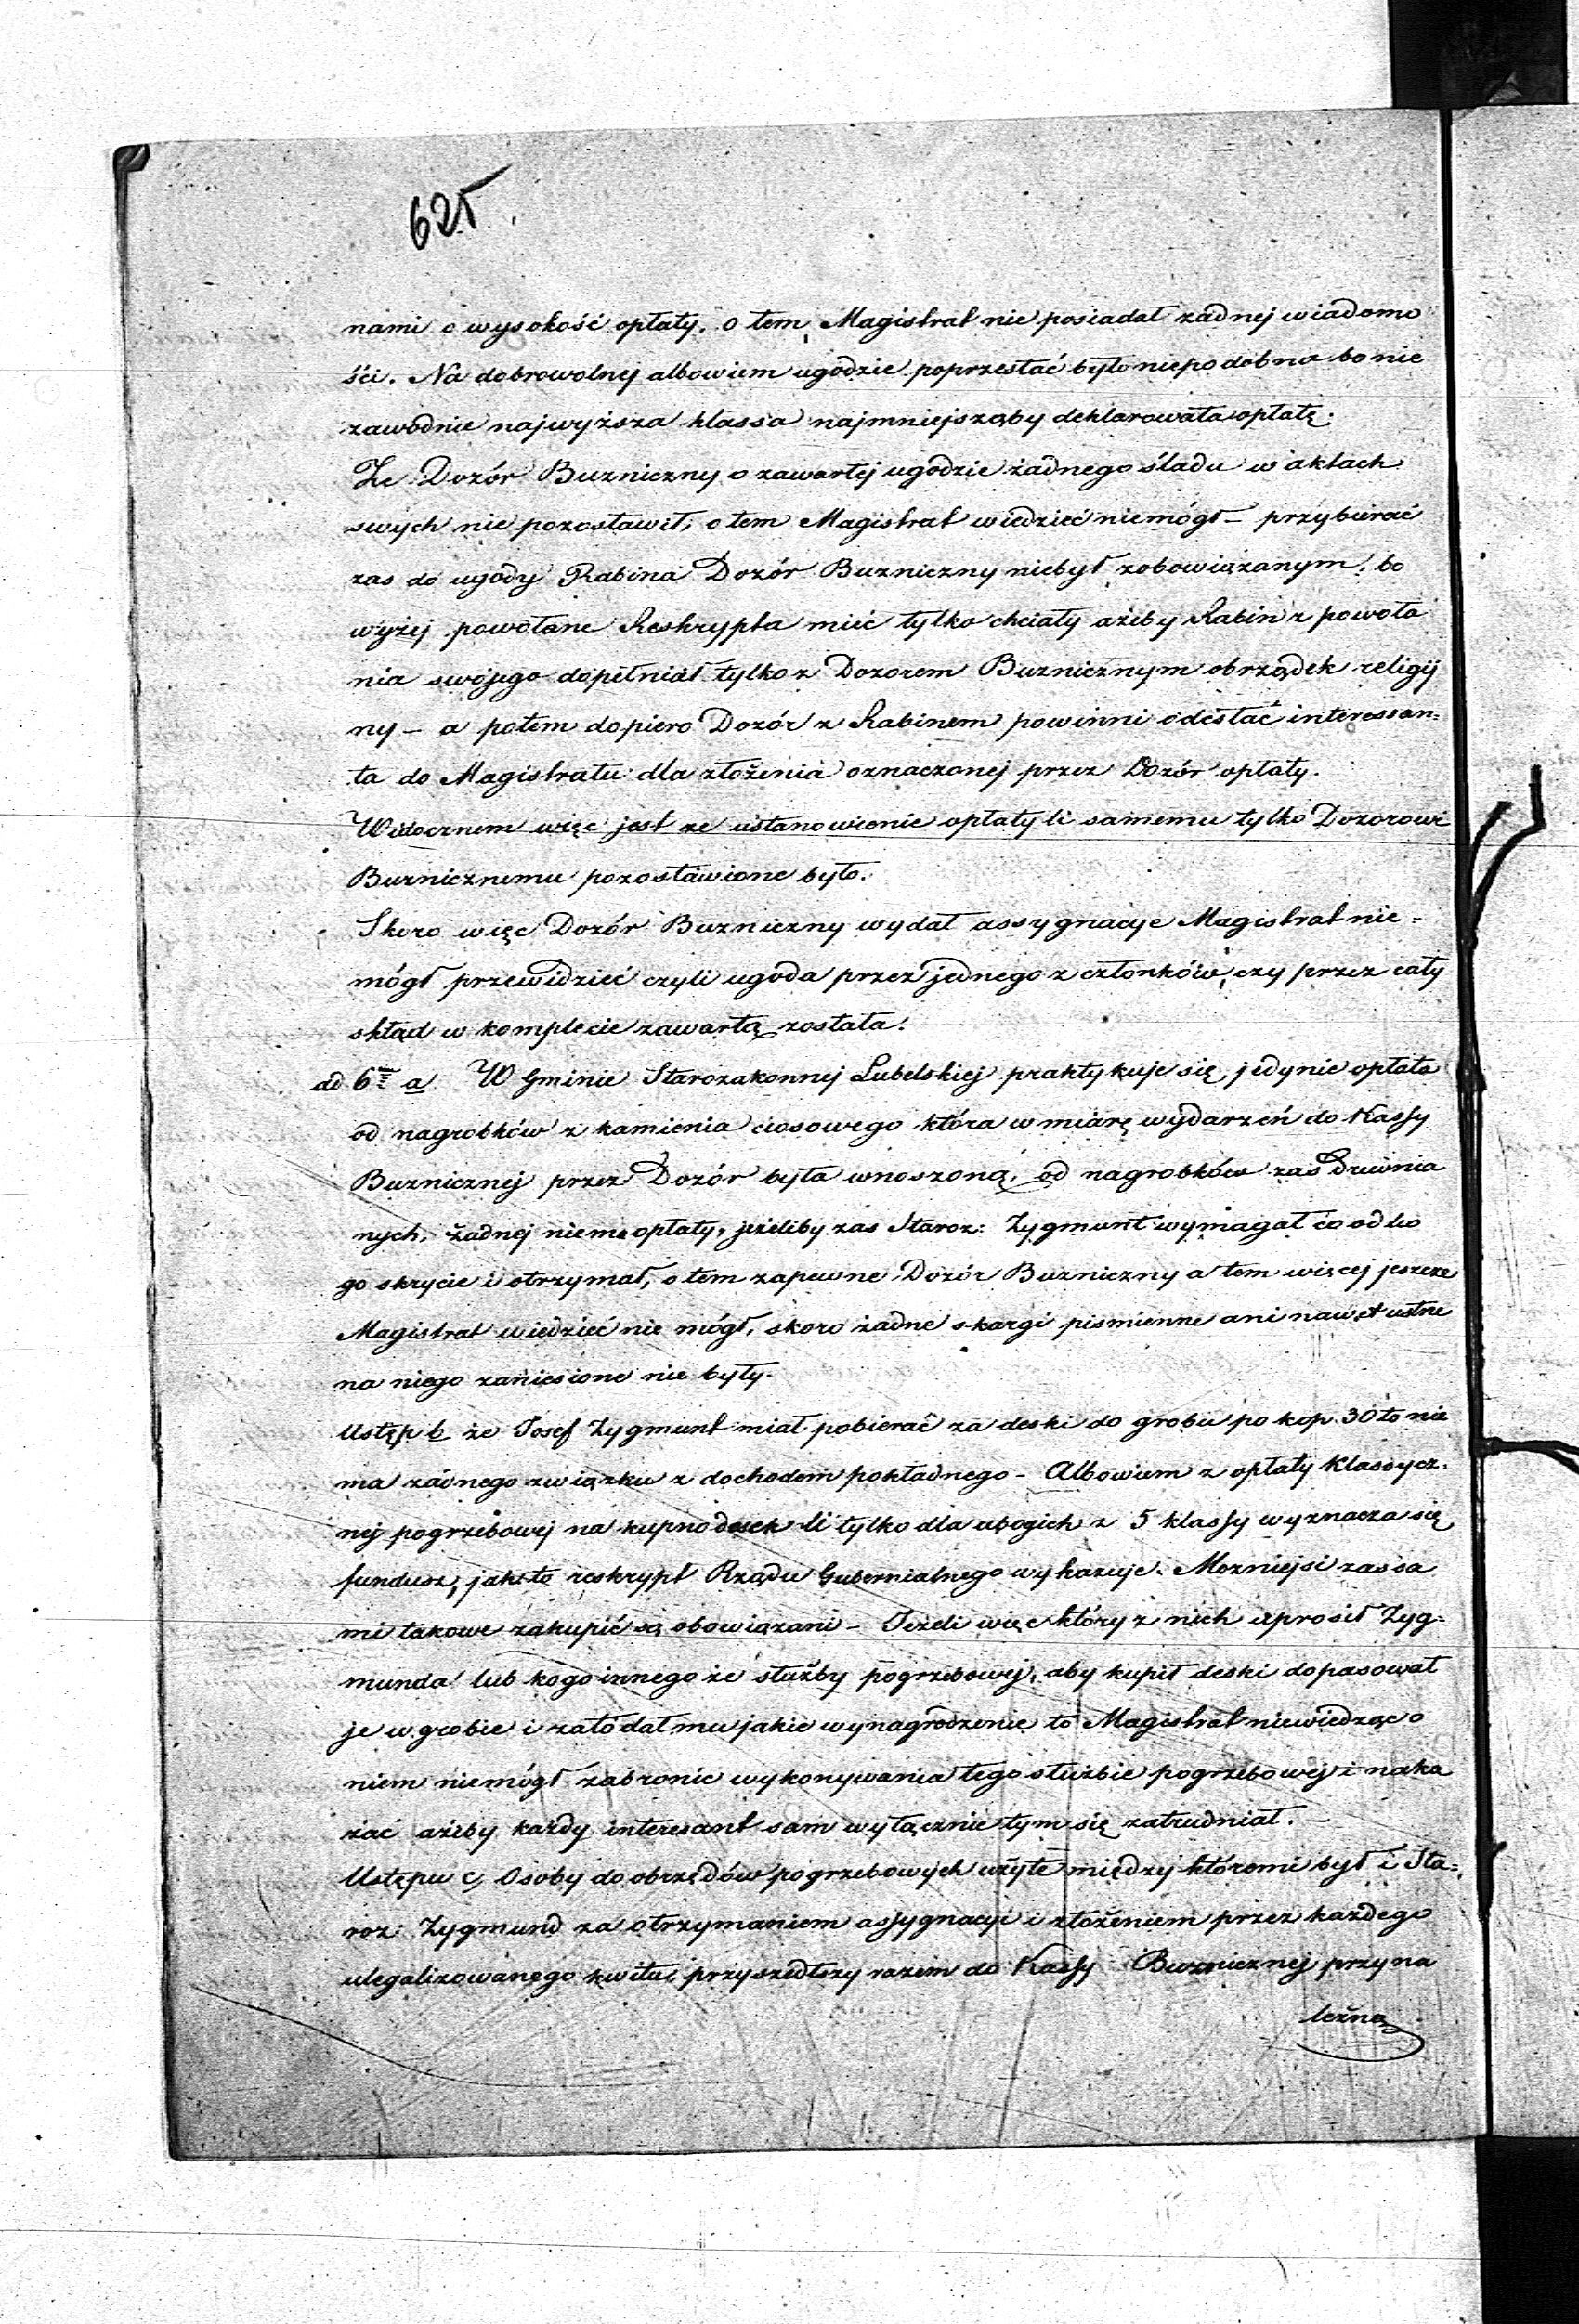 625
nami o wysokość opłaty, o tem Magistrat nie posiadał żadnej wiadomo
ści. Na dobrowolnej albowiem ugodzie poprzestać było niepodobna bo nie
zawodnie najwyższa klassa najmniejsząby deklarowała opłatę.
Że Dozór Buzniczny o zawartej ugodzie żadnego śladu w aktach
swych nie pozostawił, o tem Magistrat wiedzieć niemógł – przybierać
zas do ugody Rabina Dozór Buzniczny niebył zobowiązanym, bo
wyżej powołane Reskrypta mieć tylko chciały ażeby Rabin z powoła
nia swojego dopełniał tylko z Dozorem Buznicznym obrządek religij
ny – a potem dopiero Dozór z Rabinem powinni odesłać interessan=
ta do Magistratu dla złożenia oznaczonej przez Dozór opłaty.
Widocznem więc jest że ustanowienie opłaty li samemu tylko Dozorowi
Buznicznemu pozostawione było.
Skoro więc Dozór Buzniczny wydał assygnacye Magistrat nie=
mógł przewidzieć czyli ugoda przez jednego z członków, czy przez cały
skład w komplecie zawartą została.
ad 6m a W Gminie Starozakonnej Lubelskiej praktykuje się jedynie opłata
od nagrobków z kamienia ciosowego która w miarę wydarzeń do Kassy
Buznicznej przez Dozór była wnoszoną, od nagrobków zas drewnia
nych, żadnej niema opłaty, jeżeliby zas Staroz: Zygmunt wymagał co od ko
go skrycie i otrzymał, o tem zapewne Dozór Buzniczny a tem więcej jeszcze
Magistrat wiedzieć nie mógł, skoro żadne skargi pismienne ani nawet ustne
na niego zaniesione nie były.
Ustęp b że Josef Zygmunt miał pobierać za deski do grobu po kop. 30 to nie
ma żadnego związku z dochodem pokładnego – Albowiem z opłaty klassycz=
nej pogrzebowej na kupno desek li tylko dla ubogich z 5 klassy wyznacza się
fundusz, jak to reskrypt Rządu Gubernialnego wykazuje. Mozniejsi zas sa
mi takowe zakupić są obowiązani – Jeżeli więc który z nich uprosił Zyg=
munda lub kogo innego ze służby pogrzebowej, aby kupił deski dopasował
je w grobie i zato dał mu jakie wynagrodzenie to Magistrat niewiedząc o
niem niemógł zabronic wykonywania tego służbie pogrzebowej i naka
zać ażeby każdy interesant sam wyłącznie tym się zatrudniał. –
Ustępu c, Osoby do obrzędów pogrzebowych użyte między któremi był i Sta=
roz: Zygmund za otrzymaniem assygnacyi i złożeniem przez każdego
ulegalizowanego kwitu, przyszedłszy razem do Kassy Buznicznej przyna
leżną